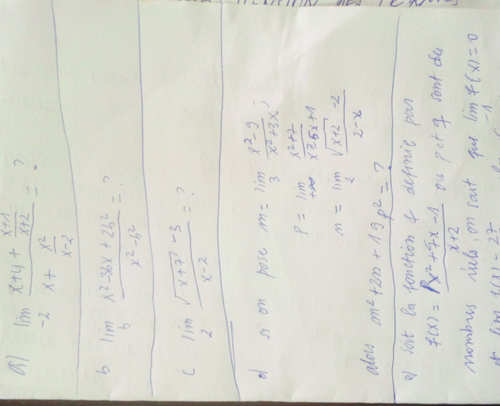 a) lim -2 (x+4 + (x+1)/(x+2)) / (x + x²/(x-2)) = ?
b lim b (x²-3bx+2b²)/(x²-b²) = ?
c lim 2 (√(x+7) -3)/(x-2) = ?
d) si on pose m = lim 3 (x²-9)/(x²+3x) ;
p = lim +∞ (x²+7)/(x²-5x+1)
n = lim 2 (√(x+2) -2)/(2-x)
alors m²+2n+19p² = ?
e) soit la fonction f definie par
f(x) = (px²+qx-1)/(x+2) ou p et q sont des
nombres réels on sait que lim -1 f(x)=0
et lim f(x) = 27